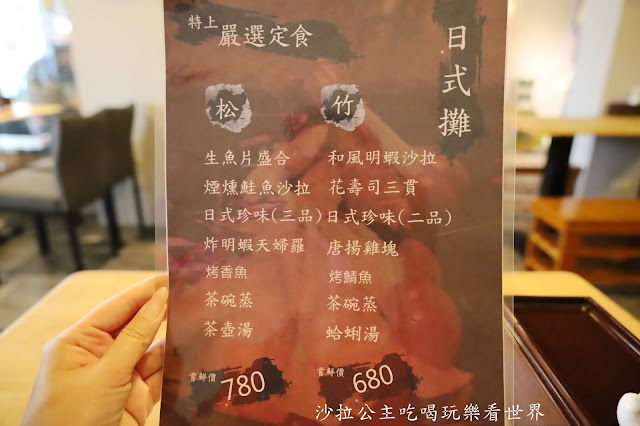 日式攤
特上
嚴選定食
松
生魚片盛合
煙燻鮭魚沙拉
日式珍味(三品)
炸明蝦天婦羅
烤香魚
茶碗蒸
茶壺湯
嘗鮮價 780
竹
和風明蝦沙拉
花壽司三貫
日式珍味(二品)
唐揚雞塊
烤鯖魚
茶碗蒸
蛤蜊湯
嘗鮮價 680
沙拉公主吃喝玩樂看世界